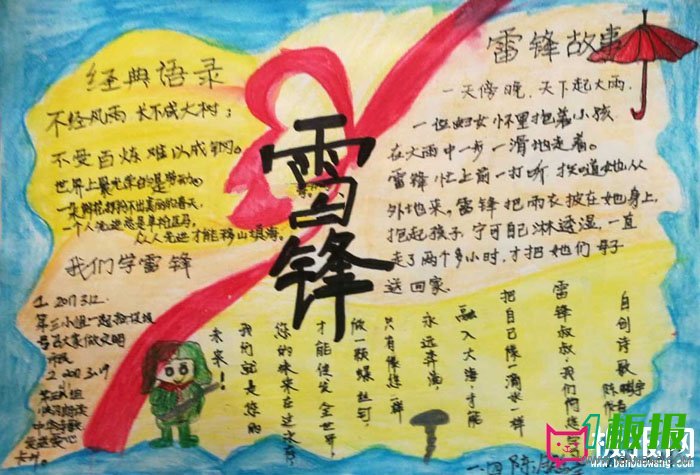 经典语录
不经风雨 长不成大树；
不受百炼 难以成钢。
世界上最光荣的是劳动。
一朵鲜花打扮不出美丽的春天，
一个人先进总是单枪匹马，
众人先进才能移山填海。
我们学雷锋
1. 2017 3.12.
第三小组一起捡垃圾
号召大家做文明
市民
2. 2017.3.19
雷锋
雷锋故事
一天傍晚，天下起大雨，
一位妇女怀里抱着小孩
在大雨中一步一滑地走着。
雷锋忙上前一打听 才知道她从
外地来，雷锋把雨衣披在她身上，
抱起孩子 宁可自己淋透湿，一直
走了两个多小时，才把她们母子
送回家。
自创诗歌
雷锋叔叔，我们
把自己像一滴水一样
融入大海才能
永远奔涌，
只有像您一样
做一颗螺丝钉，
才能使发全世界，
您的未来在这次有
我们就是您的
未来！
1板报